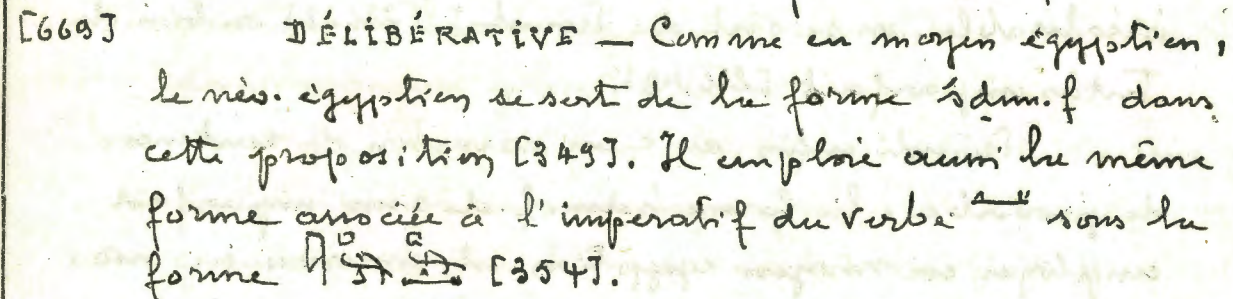 [669] DÉLIBÉRATIVE — Comme en moyen égyptien,
le néo-égyptien se sert de la forme śdm.f dans
cette proposition [349]. Il emploie aussi la même
forme associée à l'imperatif du verbe sous la
forme [354].